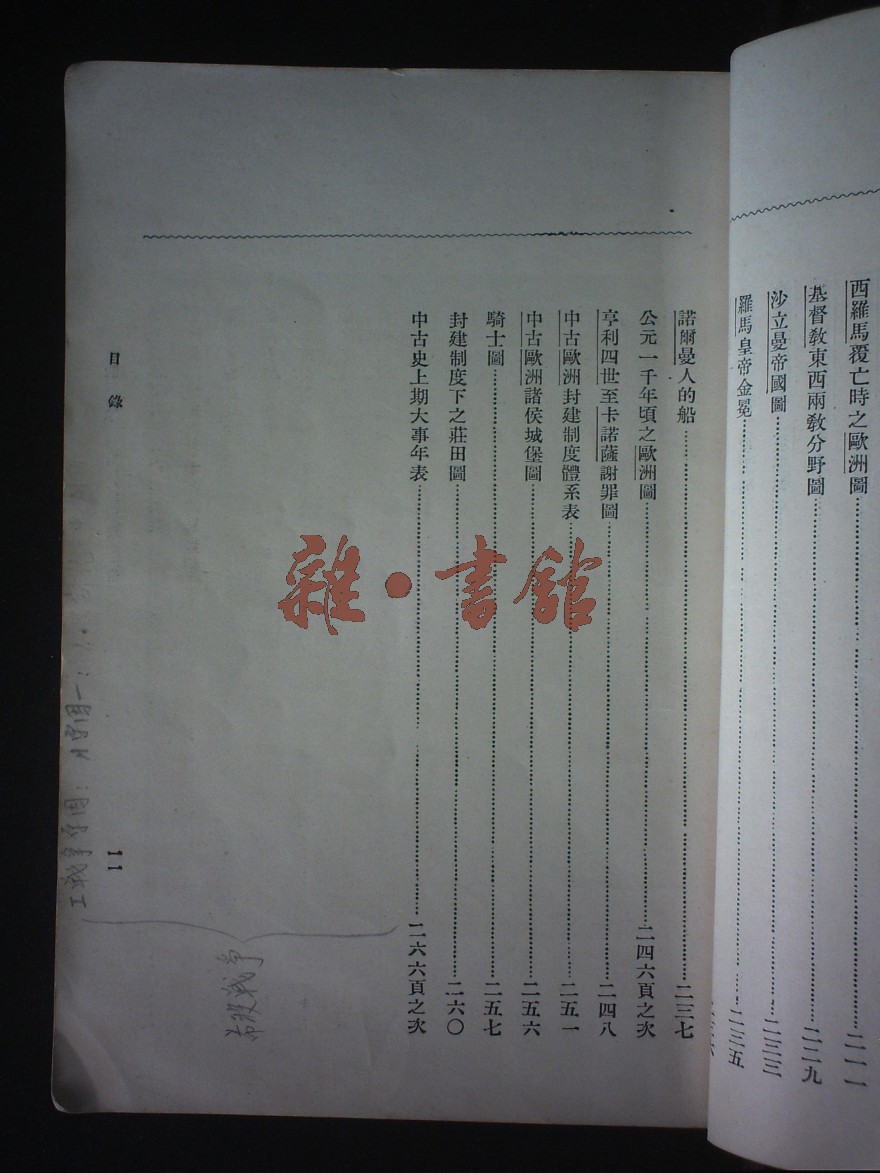 西羅馬覆亡時之歐洲圖……二一一
基督教東西兩教分野圖……二二九
沙立曼帝國圖……二三三
羅馬皇帝金冕……二三五
諾爾曼人的船……二三七
公元一千年頃之歐洲圖……二四六頁之次
亨利四世至卡諾薩謝罪圖……二四八
中古歐洲封建制度體系表……二五一
中古歐洲諸侯城堡圖……二五六
騎士圖……二五七
封建制度下之莊田圖……二六〇
中古史上期大事年表……二六六頁之次
目錄
11
雜·書館
戰爭